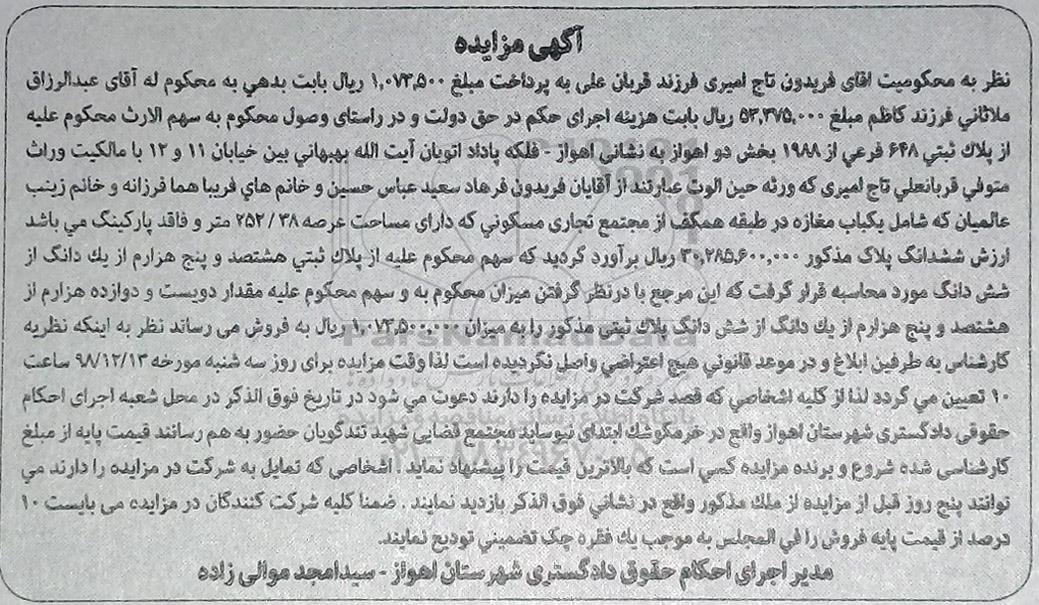 آگهی مزایده
نظر به محکومیت اقای فریدون تاج امیری فرزند قربان علی به پرداخت مبلغ ۱,۰۷۳,۵۰۰ ریال بابت بدهي به محکوم له آقای عبدالرزاق
ملاثاني فرزند کاظم مبلغ ۵۳,۳۷۵,۰۰۰ ریال بابت هزینه اجرای حکم در حق دولت و در راستای وصول محکوم به سهم الارث محکوم علیه
از پلاك ثبتي ۶۴۸ فرعي از ۱۹۸۸ بخش دو اهواز به نشاني اهواز - فلکه پاداد اتوبان آیت الله بهبهاني بین خیابان ۱۱ و ۱۲ با مالکیت وراث
متوفي قربانعلي تاج امیری که ورثه حین الوت عبارتند از آقایان فریدون فرهاد سعید عباس حسین و خانم هاي فریبا هما فرزانه و خانم زینب
عالمیان که شامل یکباب مغازه در طبقه همکف از مجتمع تجاری مسکوني که دارای مساحت عرصه ۲۵۲/۳۸ متر و فاقد پارکینگ مي باشد
ارزش ششدانگ پلاک مذکور ۳۰,۲۸۵,۶۰۰,۰۰۰ ریال برآورد گردید که سهم محکوم علیه از پلاك ثبتي هشتصد و پنج هزارم از یك دانگ از
شش دانگ مورد محاسبه قرار گرفت که این مرجع با درنظر گرفتن میزان محکوم به و سهم محکوم علیه مقدار دویست و دوازده هزارم از
هشتصد و پنج هزارم از یك دانگ از شش دانگ پلاك ثبتی مذکور را به میزان ۱,۰۷۳,۵۰۰,۰۰۰ ریال به فروش می رساند نظر به اینکه نظریه
کارشناس به طرفین ابلاغ و در موعد قانوني هیچ اعتراضي واصل نگردیده است لذا وقت مزایده برای روز سه شنبه مورخه ۹۸/۱۲/۱۳ ساعت
۱۰ تعیین مي گردد لذا از کلیه اشخاصي که قصد شرکت در مزایده را دارند دعوت مي شود در تاریخ فوق الذکر در محل شعبه اجرای احکام
حقوقی دادگستری شهرستان اهواز واقع در خرمکوشك ابتدای نیوساید مجتمع قضایی شهید تندگویان حضور به هم رسانند قیمت پایه از مبلغ
کارشناسی شده شروع و برنده مزایده کسي است که بالاترین قیمت را پیشنهاد نماید . اشخاصي که تمایل به شرکت در مزایده را دارند مي
توانند پنج روز قبل از مزایده از ملك مذکور واقع در نشاني فوق الذکر بازدید نمایند . ضمنا کلیه شرکت کنندگان در مزایده می بایست ۱۰
درصد از قیمت پایه فروش را في المجلس به موجب یك فقره چک تضمیني تودیع نمایند.
مدیر اجرای احکام حقوق دادگستری شهرستان اهواز - سیدامجد موالی زاده
ParsNamadData